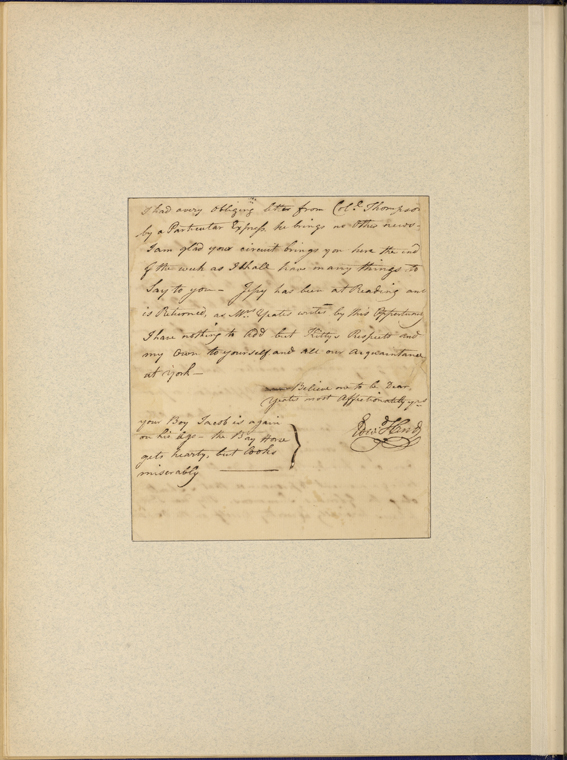 I had a very obliging letter from Col.o Thompson
by a Particular Express he brings no other news -
I am glad your circuit brings you here the end
of the week as I shall have many things to
Say to you - Jessy has been at Reading and
is Returned, as Mrs Yeates writes by this Opportunity
I have nothing to add but Kittys Respects and
my Own to yourself and all our Acquaintance
at York -
Believe me to be Dear
Yeates most Affectionately yrs
Edwd Hand
your Boy Jacob is again
on his legs - the Bay Horse
gets hearty, but looks
miserably